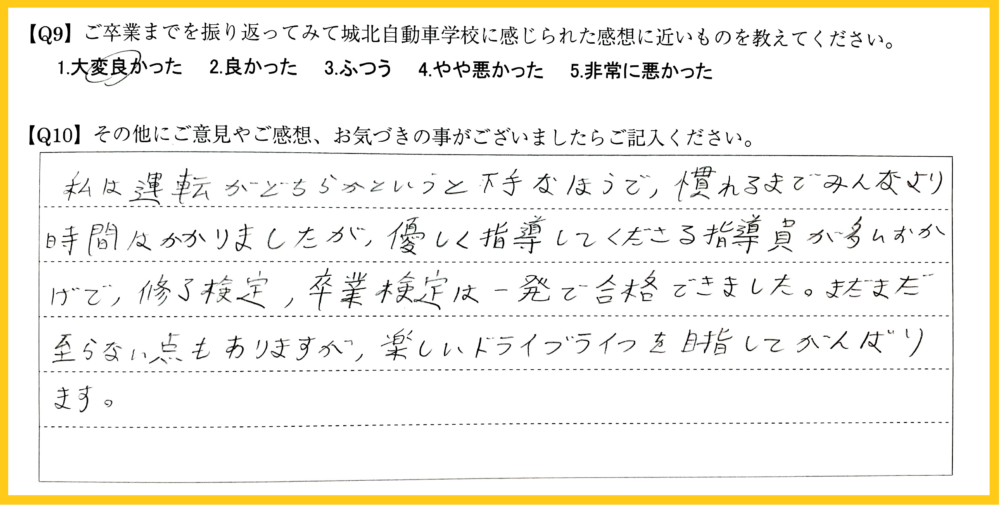 【Q9】ご卒業までを振り返ってみて城北自動車学校に感じられた感想に近いものを教えてください。
1.大変良かった 2.良かった 3.ふつう 4.やや悪かった 5.非常に悪かった
【Q10】その他にご意見やご感想、お気づきの事がございましたらご記入ください。
私は運転がどちらかというと下手なほうで、慣れるまでみんなより
時間はかかりましたが、優しく指導してくださる指導員が多いおか
げで、修了検定、卒業検定は一発で合格できました。まだまだ
至らない点もありますが、楽しいドライブライフを目指してがんばり
ます。